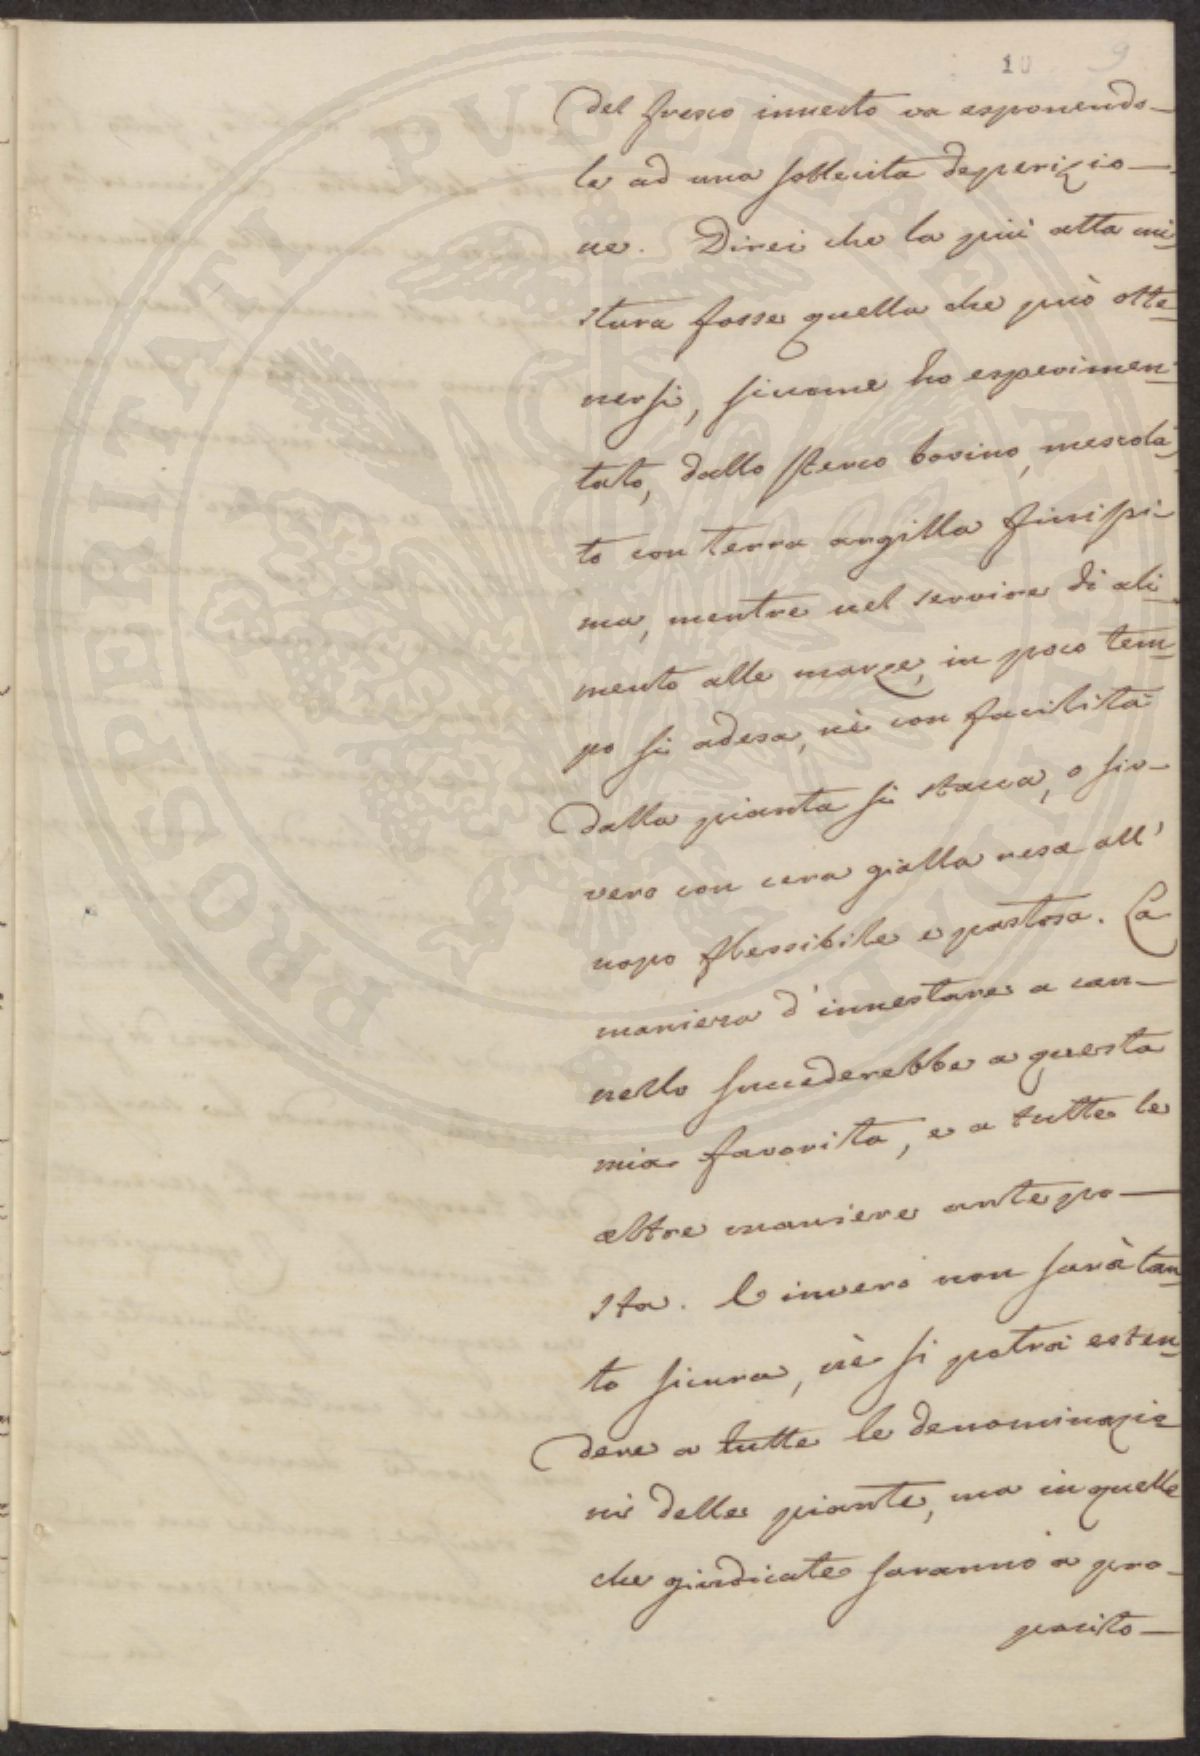 10 9
del fresco innesto va esponendo—
le ad una sollecita deperizio—
ne. Direi che la più atta mi-
stura fosse quella che può otte-
nersi, siccome ho esperimen-
tato, dallo sterco bovino, mescola-
to con terra argilla finissi-
ma, mentre nel servire di ali-
mento alle marze, in poco tem-
po si adesa, nè con facilità
dalla pianta si stacca, o siv-
vero con cera gialla resa all'
uopo flessibile e pastosa. La
maniera d'innestare a can—
nello succederebbe a questa
mia favorita, e a tutte le
altre maniere antepo—
sta. E invero non sarà tan-
to sicura, nè si potrà esten-
dere a tutte le denominazio-
ni delle piante, ma in quelle
che giudicate saranno a pro-
posito—
PROSPERITATI PVBLICAE AVGENDAE